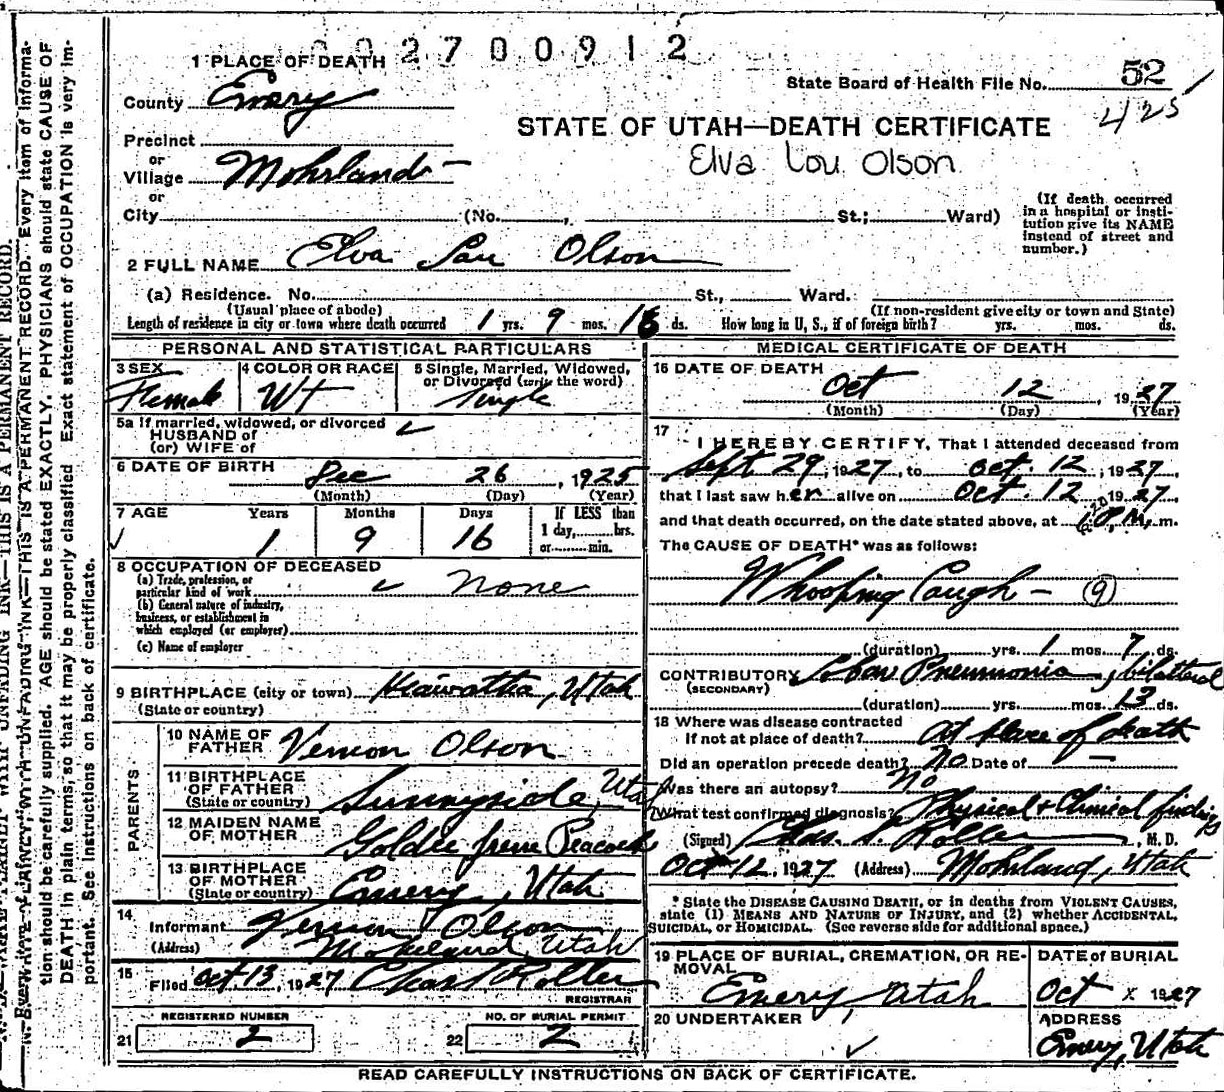 002700912
1 PLACE OF DEATH
State Board of Health File No. 52
425
County Emery
STATE OF UTAH—DEATH CERTIFICATE
Elva Lou Olson
Precinct
or
Village Mohrland
or
City (No. , St.; Ward)
(If death occurred in a hospital or institution give its NAME instead of street and number.)
2 FULL NAME Elva Lou Olson
(a) Residence. No. St., Ward.
(Usual place of abode) (If non-resident give city or town and State)
Length of residence in city or town where death occurred 1 yrs. 9 mos. 16 ds. How long in U, S., if of foreign birth? yrs. mos. ds.
PERSONAL AND STATISTICAL PARTICULARS
3 SEX 4 COLOR OR RACE 5 Single, Married, Widowed,
or Divorced (write the word)
Female Wt Single
5a If married, widowed, or divorced
HUSBAND of
(or) WIFE of
6 DATE OF BIRTH Dec 26, 1925
(Month) (Day) (Year)
7 AGE Years Months Days If LESS than
1 day, hrs.
or min.
1 9 16
8 OCCUPATION OF DECEASED
(a) Trade, profession, or
particular kind of work none
(b) General nature of industry,
business, or establishment in
which employed (or employer)
(c) Name of employer
9 BIRTHPLACE (city or town) Hiawatha, Utah
(State or country)
PARENTS
10 NAME OF
FATHER Vernon Olson
11 BIRTHPLACE
OF FATHER
(State or country) Sunnyside, Utah
12 MAIDEN NAME
OF MOTHER Goldie Irene Peacock
13 BIRTHPLACE
OF MOTHER
(State or country) Emery, Utah
14
Informant Vernon Olson
(Address) Mohrland, Utah
15
Filed Oct 13, 1927 Chas S Roller
REGISTRAR
REGISTERED NUMBER NO. OF BURIAL PERMIT
21 2 22 2
MEDICAL CERTIFICATE OF DEATH
16 DATE OF DEATH
Oct 12, 1927
(Month) (Day) (Year)
17
I HEREBY CERTIFY, That I attended deceased from
Sept 29, 1927, to Oct. 12, 1927
that I last saw her alive on Oct. 12, 1927
and that death occurred, on the date stated above, at m.
The CAUSE OF DEATH* was as follows:
Whooping Cough — 9
(duration) yrs. 1 mos. 7 ds.
CONTRIBUTORY Lobar Pneumonia, bilateral
(SECONDARY)
(duration) yrs. mos. 13 ds.
18 Where was disease contracted
If not at place of death? At place of death
Did an operation precede death? No Date of —
Was there an autopsy? No
What test confirmed diagnosis? Physical & Clinical findings
(Signed) Chas. S. Roller, M. D.
Oct 12, 1927 (Address) Mohrland, Utah
* State the DISEASE CAUSING DEATH, or in deaths from VIOLENT CAUSES,
state (1) MEANS AND NATURE OF INJURY, and (2) whether ACCIDENTAL,
SUICIDAL, or HOMICIDAL. (See reverse side for additional space.)
19 PLACE OF BURIAL, CREMATION, OR RE-
MOVAL
Emery, Utah
DATE OF BURIAL
Oct x 1927
20 UNDERTAKER
ADDRESS
Emery, Utah
READ CAREFULLY INSTRUCTIONS ON BACK OF CERTIFICATE.
WRITE PLAINLY, WITH UNFADING INK—THIS IS A PERMANENT RECORD. Every item of informa-
tion should be carefully supplied. AGE should be stated EXACTLY. PHYSICIANS should state CAUSE OF
DEATH in plain terms, so that it may be properly classified. Exact statement of OCCUPATION is very im-
portant. See instructions on back of certificate.